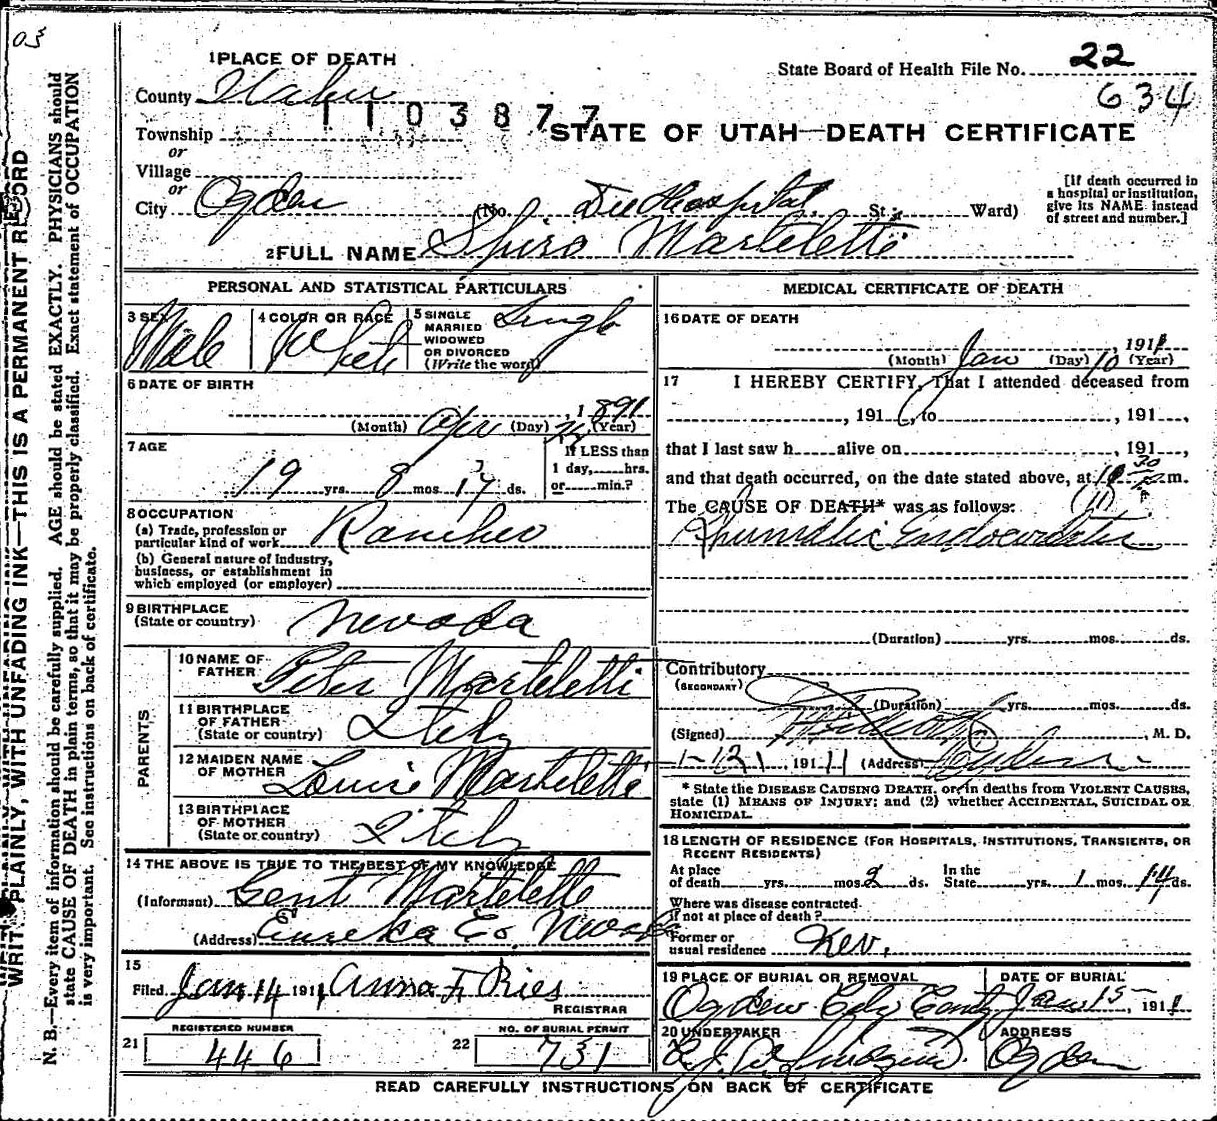 03
1 PLACE OF DEATH
State Board of Health File No. 22
634
County Weber
1103877
Township
STATE OF UTAH—DEATH CERTIFICATE
or
Village
or
City Ogden (No. Dee Hospital St.; Ward)
[If death occurred in
a hospital or institution,
give its NAME instead
of street and number.]
2 FULL NAME Spiro Marteletti
PERSONAL AND STATISTICAL PARTICULARS
3 SEX Male
4 COLOR OR RACE White
5 SINGLE
MARRIED
WIDOWED
OR DIVORCED
(Write the word)
Single
6 DATE OF BIRTH
, 1891
(Month) Apr (Day) (Year)
7 AGE
19 yrs. 8 mos. 17 ds.
If LESS than
1 day, hrs.
or min.?
8 OCCUPATION
(a) Trade, profession or
particular kind of work Rancher
(b) General nature of industry,
business, or establishment in
which employed (or employer)
9 BIRTHPLACE
(State or country) Nevada
PARENTS
10 NAME OF
FATHER Peter Marteletti
11 BIRTHPLACE
OF FATHER
(State or country) Italy
12 MAIDEN NAME
OF MOTHER Louise Marteletti
13 BIRTHPLACE
OF MOTHER
(State or country) Italy
14 THE ABOVE IS TRUE TO THE BEST OF MY KNOWLEDGE
(Informant) Gent Martelette
(Address) Eureka Co, Nevada
15
Filed Jan 14 1911 Anna F. Ries
REGISTRAR
REGISTERED NUMBER
21 446
NO. OF BURIAL PERMIT
22 731
MEDICAL CERTIFICATE OF DEATH
16 DATE OF DEATH
, 1911
(Month) Jan (Day) 10 (Year)
17 I HEREBY CERTIFY, That I attended deceased from
, 191 , to , 191 ,
that I last saw h alive on , 191 ,
and that death occurred, on the date stated above, at m.
The CAUSE OF DEATH* was as follows:
Rhumatic Endocarditis
(Duration) yrs. mos. ds.
Contributory
(SECONDARY)
(Duration) yrs. mos. ds.
(Signed) , M. D.
, 1911 (Address) Ogden
* State the DISEASE CAUSING DEATH, or, in deaths from VIOLENT CAUSES,
state (1) MEANS OF INJURY; and (2) whether ACCIDENTAL, SUICIDAL OR
HOMICIDAL.
18 LENGTH OF RESIDENCE (FOR HOSPITALS, INSTITUTIONS, TRANSIENTS, OR
RECENT RESIDENTS)
At place
of death yrs. mos. 2 ds. In the
State yrs. 1 mos. 14 ds.
Where was disease contracted
if not at place of death?
Former or
usual residence Nev.
19 PLACE OF BURIAL OR REMOVAL
Ogden City Cemty
DATE OF BURIAL
Jan 15, 1911
20 UNDERTAKER
ADDRESS
Ogden
READ CAREFULLY INSTRUCTIONS ON BACK OF CERTIFICATE
WRITE PLAINLY, WITH UNFADING INK—THIS IS A PERMANENT RECORD
N. B.—Every item of information should be carefully supplied. AGE should be stated EXACTLY. PHYSICIANS should
state CAUSE OF DEATH in plain terms, so that it may be properly classified. Exact statement of OCCUPATION
is very important. See instructions on back of certificate.